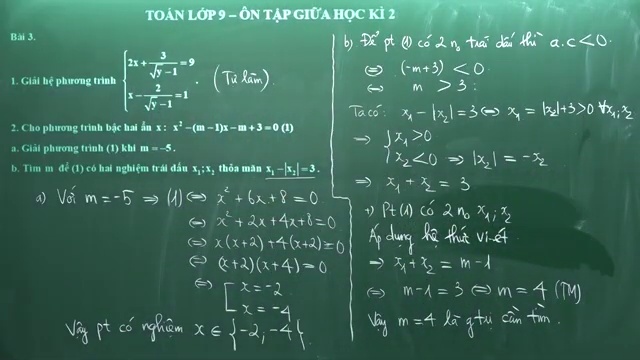 TOÁN LỚP 9 – ÔN TẬP GIỮA HỌC KÌ 2
Bài 3.
1. Giải hệ phương trình { 2x + 3/√(y−1) = 9
x − 2/√(y−1) = 1 . (Tự làm)
2. Cho phương trình bậc hai ẩn x : x² −(m−1)x−m+3=0 (1)
a. Giải phương trình (1) khi m = −5.
b. Tìm m để (1) có hai nghiệm trái dấu x₁; x₂ thỏa mãn x₁ − |x₂| = 3.
a) Với m = −5 ⇒ (1) ⇔ x² + 6x + 8 = 0
⇔ x² + 2x + 4x + 8 = 0
⇔ x(x+2) + 4(x+2) = 0
⇔ (x+2)(x+4) = 0
⇔ [ x = −2
x = −4
Vậy pt có nghiệm x ∈ {−2, −4}
b) Để pt (1) có 2 n₀ trái dấu thì a.c < 0.
⇔ (−m+3) < 0
⇔ m > 3.
Ta có: x₁ − |x₂| = 3 ⇔ x₁ = |x₂| + 3 > 0 ∀x₁, x₂
⇒ { x₁ > 0
x₂ < 0 ⇒ |x₂| = −x₂
⇒ x₁ + x₂ = 3
+) Pt (1) có 2 n₀ x₁; x₂
Áp dụng hệ thức Vi-ét
⇒ x₁ + x₂ = m − 1
⇔ m − 1 = 3 ⇔ m = 4 (TM)
Vậy m = 4 là g trị cần tìm.